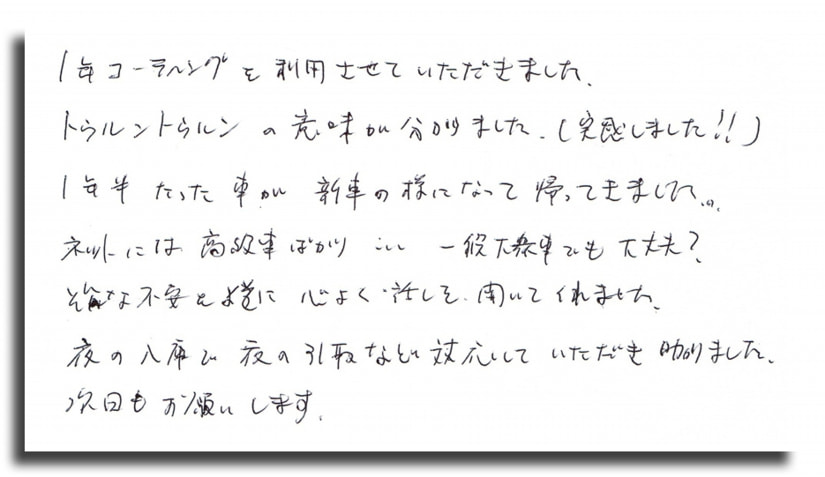 1年コーティングを利用させていただきました。
トゥルントゥルンの意味が分かりました。(実感しました!!)
1年半たった車が新車の様になって帰ってきました。。
ネットには高級車ばかり… 一般大衆車でも大丈夫?
な不安を 心よく話しを聞いてくれました。
夜の入庫や夜の引取など対応していただき助かりました。
次回もお願いします。